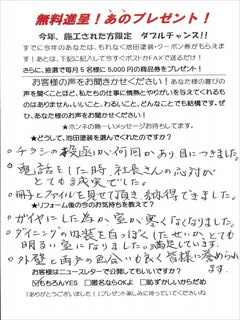 無料進呈!あのプレゼント!
今年、施工された方限定 ダブルチャンス!!
すでに今年のあなたは、もれなく池田塗装・クーポン券がもらえま
す!あとは、下記に記入して今すぐポストかFAXで送るだけ!
さらに、抽選で毎月5名様に5,000円の商品券をプレゼント!
お客様の声をお聞きかせください!あなた様の喜びの
声を聞くことほど、私たちの仕事に情熱とやりがいを与えてくれるも
のはありません。いいこと、わるいこと、どんなことでも結構です。ぜ
ひ、あなた様のお声をお聞かせください!
★ホンネの熱~いメッセージお待ちしてます。
★どうして、池田塗装を選んでくださったのですか?
○チラシの投函が何回かあり目につきました。
○電話をした時、社長さんの応対が
とても誠実でした。
○冊子とファイルを見せて頂き納得できました。
★リフォーム後の今のお気持ちを教えて?
○ガイナにした為か室が寒くなくなりました。
○ダイニングの内装を白っぽくしたせいか、とても
明るい室になりました。満足しています。
○外壁と雨戸の色合いも良く皆様に誉められます。
お客様をニュースレターで公開してもいいですか?
☑もちろんYES □匿名ならOKよ □恥ずかしいからだめ
「ありがとうございました!」プレゼント楽しみに待っていてくださいね